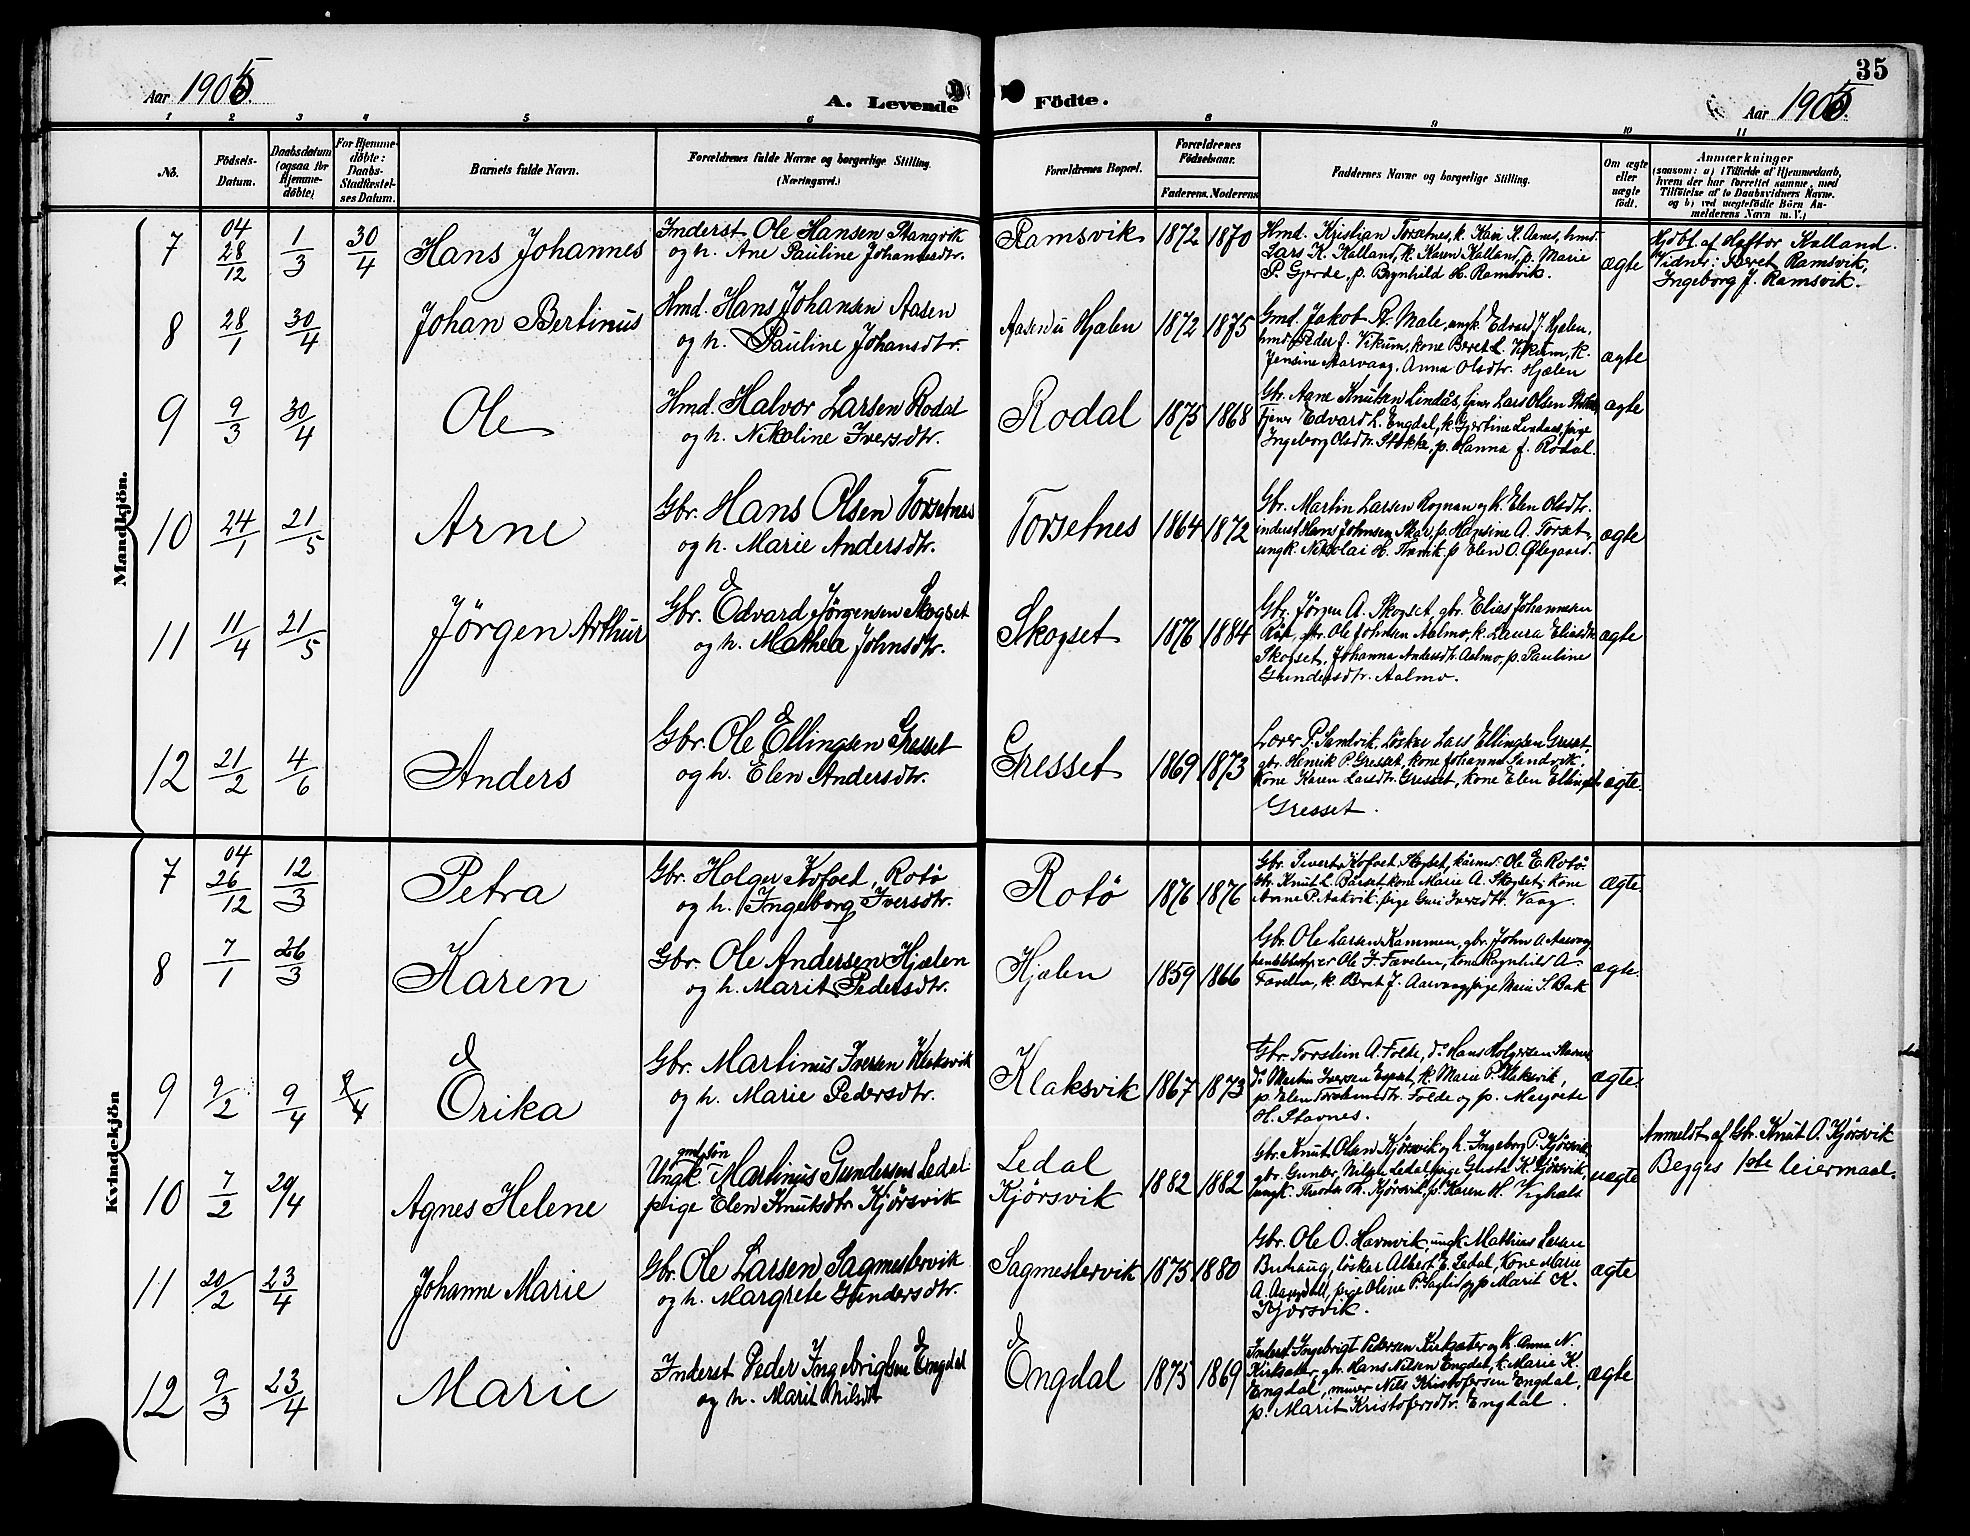 35
Aar 1905.
A. Levende Födte.
Aar 1905.
1 2 3 4 5 6 8 9 10 11
No.
Födsels-Datum.
Daabsdatum (ogsaa for Hjemmedöbte)
For Hjemmedöbte: Daabs-Stadfæstelses Datum.
Barnets fulde Navn.
Forældrenes fulde Navne og borgerlige Stilling. (Næringsvei.)
Forældrenes Bopæl.
Forældrenes Födselsaar.
Faderens. Moderens.
Faddernes Navne og borgerlige Stilling.
Om ægte eller uægte födt.
Anmærkninger
(saasom: a) i Tilfælde af Hjemmedaab, hvem der har forrettet samme, med Tilföielse af to Daabsvidners Navne. og b) ved uægtefödte Börn Anmelderens Navn m. V.)
Mandkjön.
7 04 28/12 1/3 30/4 Hans Johannes
Inderst Ole Hansen Stangvik
og h. Ane Pauline Johansdtr.
Ramsvik 1872 1870
Hmd. Kristian Torsetnes, k. Kari K. Aanes, hmd.
Lars K. Kalland, k. Karen Kalland, p. Marie
P. Gjerde, p. Brynhild H. Ramsvik.
ægte
Hjdbt. af Haftor Kalland.
Vidner: Beret Ramsvik,
Ingeborg J. Ramsvik.
8 28/1 30/4 Johan Bertinus
Hmd. Hans Johansen Aasen
og h. Pauline Johansdtr.
Aasen u Hjælen 1872 1875
Gmd. Jakob R. Male, ungk. Edvard J. Hjælen,
hmd. Peder J. Vikum, kone Beret L. Vikum, k.
Jensine Aarvaag, Anna Olsdtr. Hjælen
ægte
9 9/3 30/4 Ole
Hmd. Halvor Larsen Rodal
og h. Nikoline Iversdtr.
Rodal 1875 1868
Gbr. Aane Knutsen Lindås, tjener Lars Olsen
tjener Edvard L. Engdal, k. Gjertine Lindaas, pige
Ingeborg Olsdtr. Stokke, p. Hanna J. Rodal.
ægte
10 24/1 21/5 Arne
Gbr. Hans Olsen Torsetnes
og h. Marie Andersdtr.
Torsetnes 1864 1872
Gbr. Martin Larsen Rognan og k. Elen Olsdtr.
inderst Hans Johnsen Skar, p. Hansine A. Torset,
ungk. Nikolai H. p Elen O. Ødegaard.
ægte
11 11/4 21/5 Jörgen Arthur
Gbr. Edvard Jörgensen Skogset
og h. Mathea Johnsdtr.
Skogset 1876 1884
Gbr. Jörgen A. Skogset, gbr. Elias Johannesen
Ole Johnsen Aalmo, k. Laura Eliasdtr
Skogset, Johanna Andersdtr. Aalmo, p. Pauline
Gundersdtr. Aalmo.
ægte
12 21/2 4/6 Anders
Gbr. Ole Ellingsen Gresset
og h. Elen Andersdtr.
Gresset 1869 1873
P. Sandvik, löskar Lars Ellingsen Gresset,
gbr. Henrik P. Gresset, kone Johanna Sandvik,
kone Karen Larsdtr. Gresset, kone Elen Ellingsdtr.
Gresset.
ægte.
Kvindekjön
7 04 26/12 12/3 Petra
Gbr. Holger Kofoed, Rotö
og h. Ingeborg Iversdtr.
Rotö 1876 1876
Gbr. Sivert Kofoet Skogset, kårmd. Ole E. Rotö.
Gbr. Knut L. Bårset, kone Marie A. Skogset, kone
Anne P. Aakvik, pige Guri Iversdtr. Vaag.
ægte.
8 7/1 26/3 Karen
Gbr. Ole Andersen Hjælen
og h. Marit Pedersdtr.
Hjælen 1859 1866
Gbr. Ole Larsen Kammen, gbr. John A. Aarvag
Ole J. Favelen, kone Ragnhild A
Favelen, k. Beret J. Aarvaag, pige Marie S. Bak
ægte.
9 9/2 9/4 9/4 Erika
Gbr. Martinus Iversen Klaksvik
og h. Marie Pedersdtr.
Klaksvik 1867 1873
Gbr. Torstein A. Folde, do Hans Holgersen Stavnes
do Martin Iversen Espset, k. Marie P. Klaksvik,
p. Elen Torsteinsdtr. Folde og p. Margrete
H. Stavnes.
ægte.
10 7/2 20/4 Agnes Helene
gmd. sön
Ungk. Martinus Gundersen Ledal
pige Elen Knutsdtr. Kjørsvik
Ledal
Kjørsvik 1882 1882
Gbr. Knut Olsen Kjørsvik og h. Ingeborg P. Kjørsvik,
gbr. Gunder Nilsen Ledal, pige Gusta K. Kjørsvik,
ungk. Theodor Th. Kjørsvik, p. Karen H. Vighals
uægte
Anmeldt af Gbr. Knut O. Kjørsvik
Begges 1ste leiermaal.
11 20/2 23/4 Johanne Marie
Gbr. Ole Larsen Sagmestervik
og h. Margrete Gundersdtr.
Sagmestervik 1875 1880
Gbr. Ole O. Havnvik, ungk Mathias Larsen
Buhaug, löskar Albert E. Ledal, Kone Marie
A. Aamdal, pige Oline P. Saglid og p. Marit K.
Kjørsvik.
ægte
12 9/3 23/4 Marie
Inderst Peder Ingebrigtsen Engdal
og h. Marit Nilsdtr
Engdal 1875 1869
Inderst Ingebrigt Pedersen Kirksæter og k. Anna N.
Kirksæter, gbr. Hans Nilsen Engdal, k. Marie K.
Engdal, murer Nils Kristofersen Engdal,
p. Marit Kristofersdtr. Engdal.
ægte